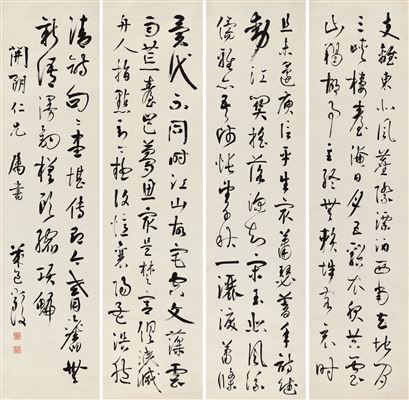 支離東北風塵際漂泊西南天地間
三峽樓臺淹日月五谿衣服共雲
山羯胡事主終無賴詞客哀時
且未還庾信平生最蕭瑟暮年詩賦
動江關搖落深知宋玉悲風流
儒雅亦吾師悵望千秋一灑淚蕭條
異代不同時江山故宅空文藻雲
雨荒臺豈夢思最是楚宮俱泯滅
舟人指點到今疑復憶襄陽孟浩然
清詩句句盡堪傳即今耆舊無
新語漫釣槎頭縮項鯿
仁兄 屬書